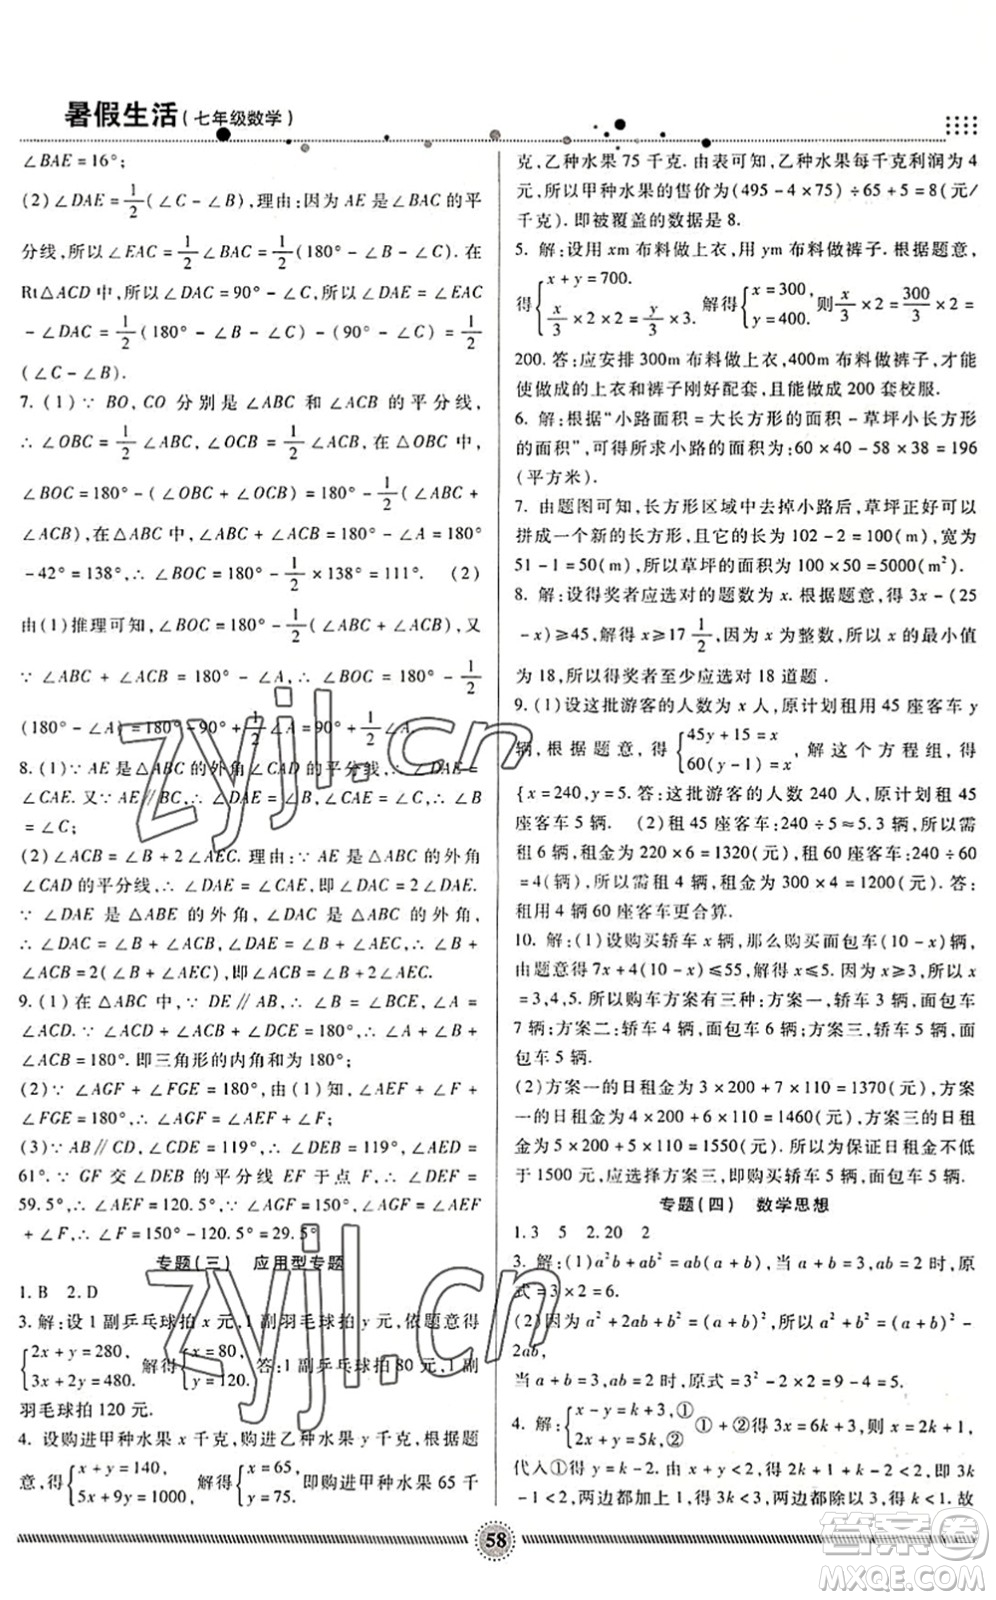 暑假生活(七年级数学)
∠BAE=16°;
(2)∠DAE=1/2(∠C-∠B),理由:因为AE是∠BAC的平
分线,所以∠EAC=1/2∠BAC=1/2(180°-∠B-∠C).在
Rt△ACD中,所以∠DAC=90°-∠C,所以∠DAE=∠EAC
-∠DAC=1/2(180°-∠B-∠C)-(90°-∠C)=1/2
(∠C-∠B).
7.(1)∵BO,CO分别是∠ABC和∠ACB的平分线,
∴∠OBC=1/2∠ABC,∠OCB=1/2∠ACB,在△OBC中,
∠BOC=180°-(∠OBC+∠OCB)=180°-1/2(∠ABC+
∠ACB),在△ABC中,∠ABC+∠ACB=180°-∠A=180°
-42°=138°,∴∠BOC=180°-1/2×138°=111°. (2)
由(1)推理可知,∠BOC=180°-1/2(∠ABC+∠ACB),又
∵∠ABC+∠ACB=180°-∠A,∴∠BOC=180°-1/2
(180°-∠A)=180°-90°+1/2∠A=90°+1/2∠A.
8.(1)∵AE是△ABC的外角∠CAD的平分线,∴∠DAE=
∠CAE.又∵AE∥BC,∴∠DAE=∠B,∠CAE=∠C,∴∠B
=∠C;
(2)∠ACB=∠B+2∠AEC.理由:∵AE是△ABC的外角
∠CAD的平分线,∴∠DAE=∠CAE,即∠DAC=2∠DAE,
∵∠DAE是△ABE的外角,∠DAC是△ABC的外角,
∴∠DAC=∠B+∠ACB,∠DAE=∠B+∠AEC,∴∠B+
∠ACB=2(∠B+∠AEC),即∠ACB=∠B+2∠AEC.
9.(1)在△ABC中,∵DE∥AB,∴∠B=∠BCE,∠A=
∠ACD.∵∠ACD+∠ACB+∠DCE=180°,∴∠A+∠B+
∠ACB=180°.即三角形的内角和为180°;
(2)∵∠AGF+∠FGE=180°,由(1)知,∠AEF+∠F+
∠FGE=180°,∴∠AGF=∠AEF+∠F;
(3)∵AB∥CD,∠CDE=119°,∴∠DEB=119°,∠AED=
61°.∵GF交∠DEB的平分线EF于点F,∴∠DEF=
59.5°,∴∠AEF=120.5°,∵∠AGF=150°,∵∠AGF=
∠AEF+∠F,∴∠F=150°-120.5°=29.5°.
专题(三) 应用型专题
1.B 2.D
3.解:设1副乒乓球拍x元,1副羽毛球拍y元,依题意得
{2x+y=280, 3x+2y=480. 解得{x=80, y=120. 答:1副乒乓球拍80元,1副
羽毛球拍120元.
4.设购进甲种水果x千克,购进乙种水果y千克,根据题
意,得{x+y=140, 5x+9y=1000, 解得{x=65, y=75, 即购进甲种水果65千
克,乙种水果75千克.由表可知,乙种水果每千克利润为4
元,所以甲种水果的售价为(495-4×75)÷65+5=8(元/
千克).即被覆盖的数据是8.
5.解:设用xm布料做上衣,用ym布料做裤子.根据题意,
得{x+y=700. x/3×2×2=y/3×3. 解得{x=300, y=400. 则x/3×2=300/3×2=
200.答:应安排300m布料做上衣,400m布料做裤子,才能
使做成的上衣和裤子刚好配套,且能做成200套校服.
6.解:根据“小路面积=大长方形的面积-草坪小长方形
的面积”,可得所求小路的面积为:60×40-58×38=196
(平方米).
7.由题图可知,长方形区域中去掉小路后,草坪正好可以
拼成一个新的长方形,且它的长为102-2=100(m),宽为
51-1=50(m),所以草坪的面积为100×50=5000(m²).
8.解:设得奖者应选对的题数为x.根据题意,得3x-(25
-x)≥45,解得x≥17 1/2,因为x为整数,所以x的最小值
为18,所以得奖者至少应选对18道题.
9.(1)设这批游客的人数为x人,原计划租用45座客车y
辆,根据题意,得{45y+15=x, 60(y-1)=x, 解这个方程组,得
{x=240,y=5.答:这批游客的人数240人,原计划租45
座客车5辆. (2)租45座客车:240÷5≈5.3辆,所以需
租6辆,租金为220×6=1320(元),租60座客车:240÷60
=4(辆),所以需租4辆,租金为300×4=1200(元).答:
租用4辆60座客车更合算.
10.解:(1)设购买轿车x辆,那么购买面包车(10-x)辆,
由题意得7x+4(10-x)≤55,解得x≤5.因为x≥3,所以x
=3,4,5.所以购车方案有三种:方案一:轿车3辆,面包车
7辆;方案二:轿车4辆,面包车6辆;方案三,轿车5辆,面
包车5辆.
(2)方案一的日租金为3×200+7×110=1370(元),方案
一的日租金为4×200+6×110=1460(元),方案三的日租
金为5×200+5×110=1550(元).所以为保证日租金不低
于1500元,应选择方案三,即购买轿车5辆,面包车5辆.
专题(四) 数学思想
1.3 5 2.20 2
3.解:(1)a²b+ab²=ab(a+b),当a+b=3,ab=2时,原
式=3×2=6.
(2)因为a²+2ab+b²=(a+b)²,所以a²+b²=(a+b)²-
2ab,
当a+b=3,ab=2时,原式=3²-2×2=9-4=5.
4.解:{x-y=k+3,① 2x+y=5k,② ①+②得3x=6k+3,则x=2k+1,
代入①得y=k-2.因为x,y之和小于2+k,所以,即3k
-1<k+2,两边都加上1,3k<k+3,两边都除以3,得k<1.故
58
zyjl.cn
zyjl.cn
答案圈
MXQE.COM